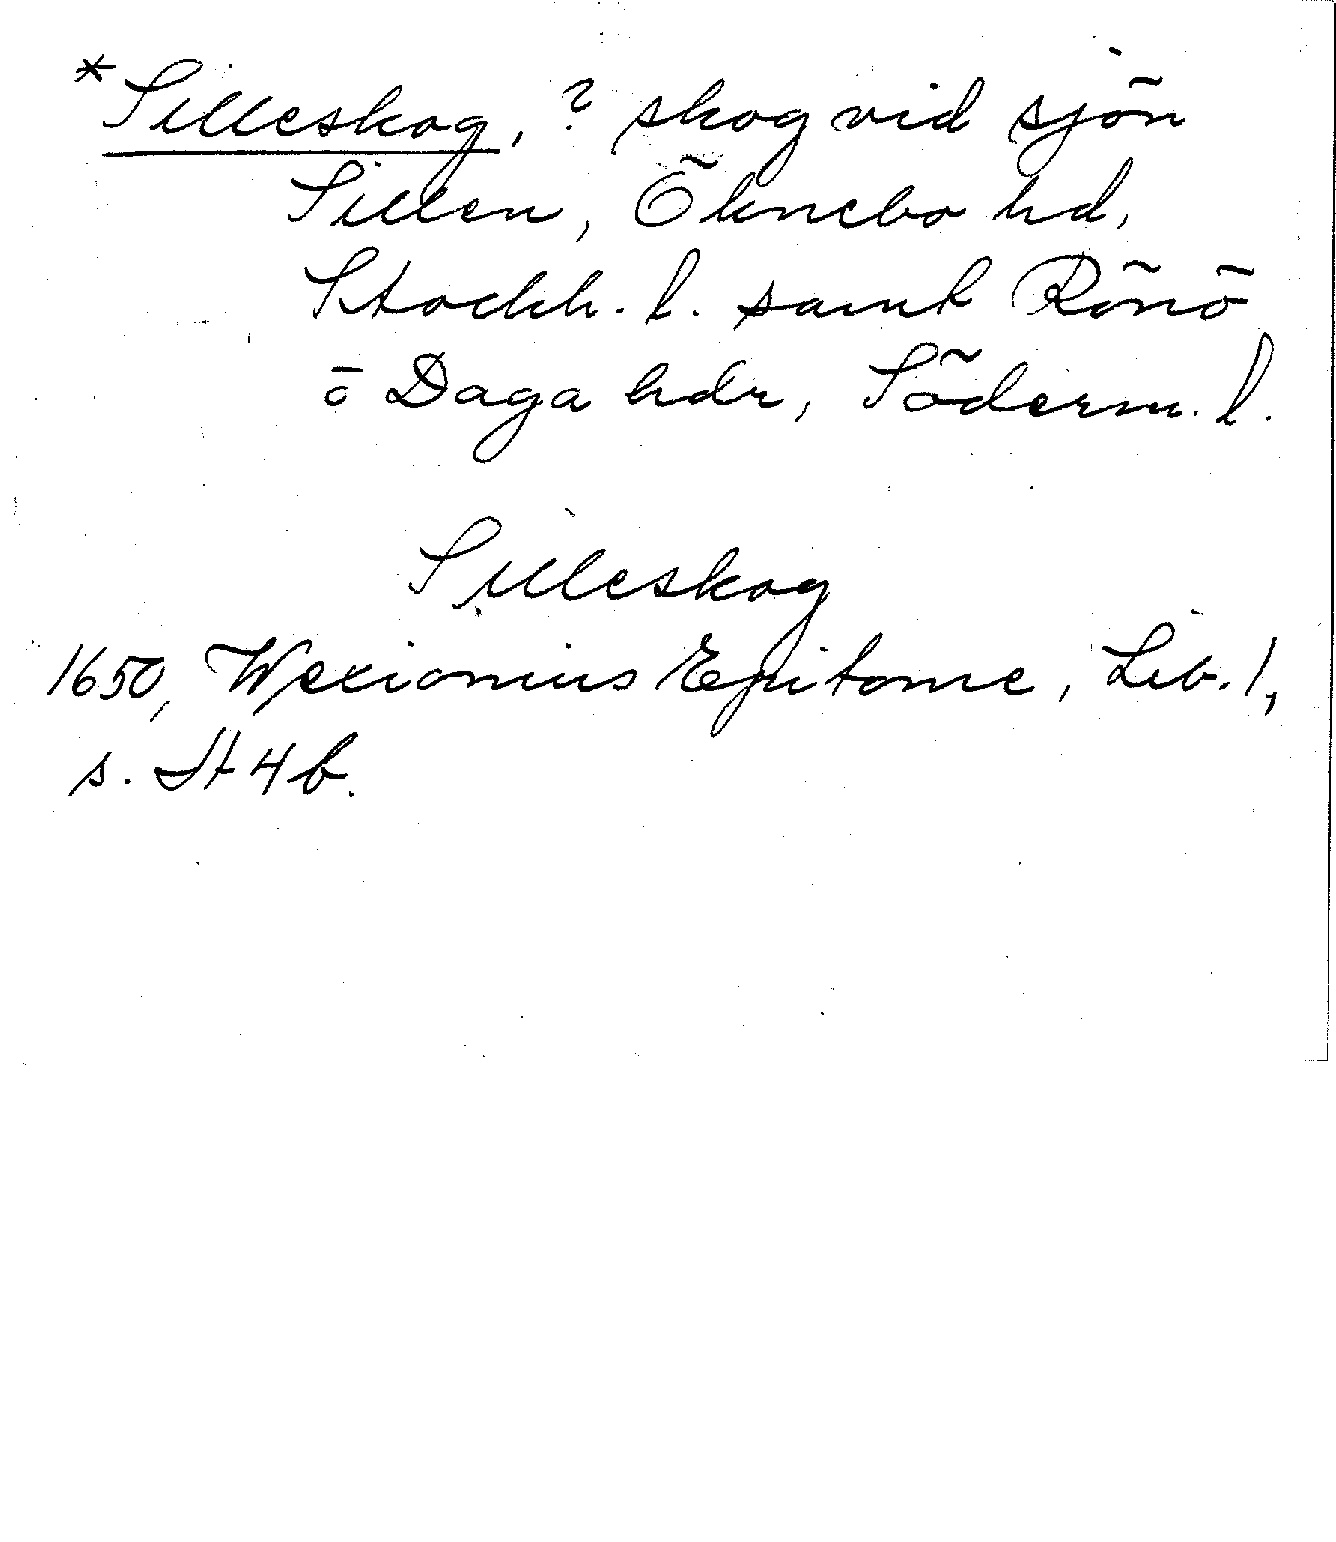 *Silleskog, ? skog vid sjön
Sillen, Öknebo hd,
Stockh. l. samt Rönö
o Daga hdr, Söderm. l.
Silleskog
1650, Wexionius Epitome, Lib. 1,
s. H4b.